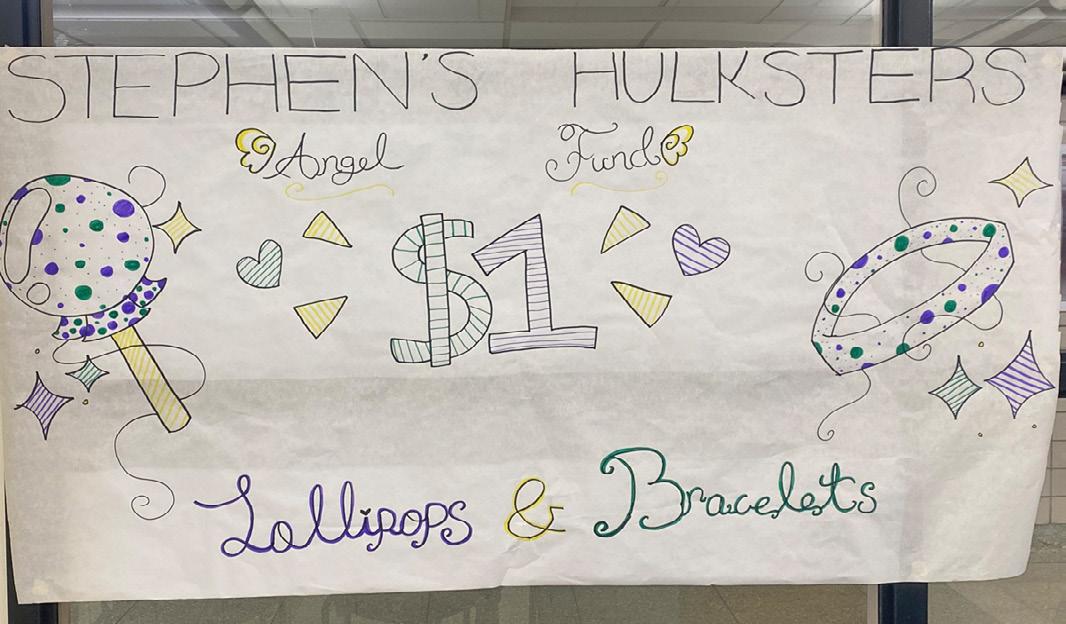 STEPHEN'S HULKSTERS
Angel Fund
$1
Lollipops & Bracelets